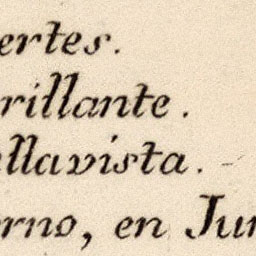 ertes.
rillante.
llavista.
erno, en Jun